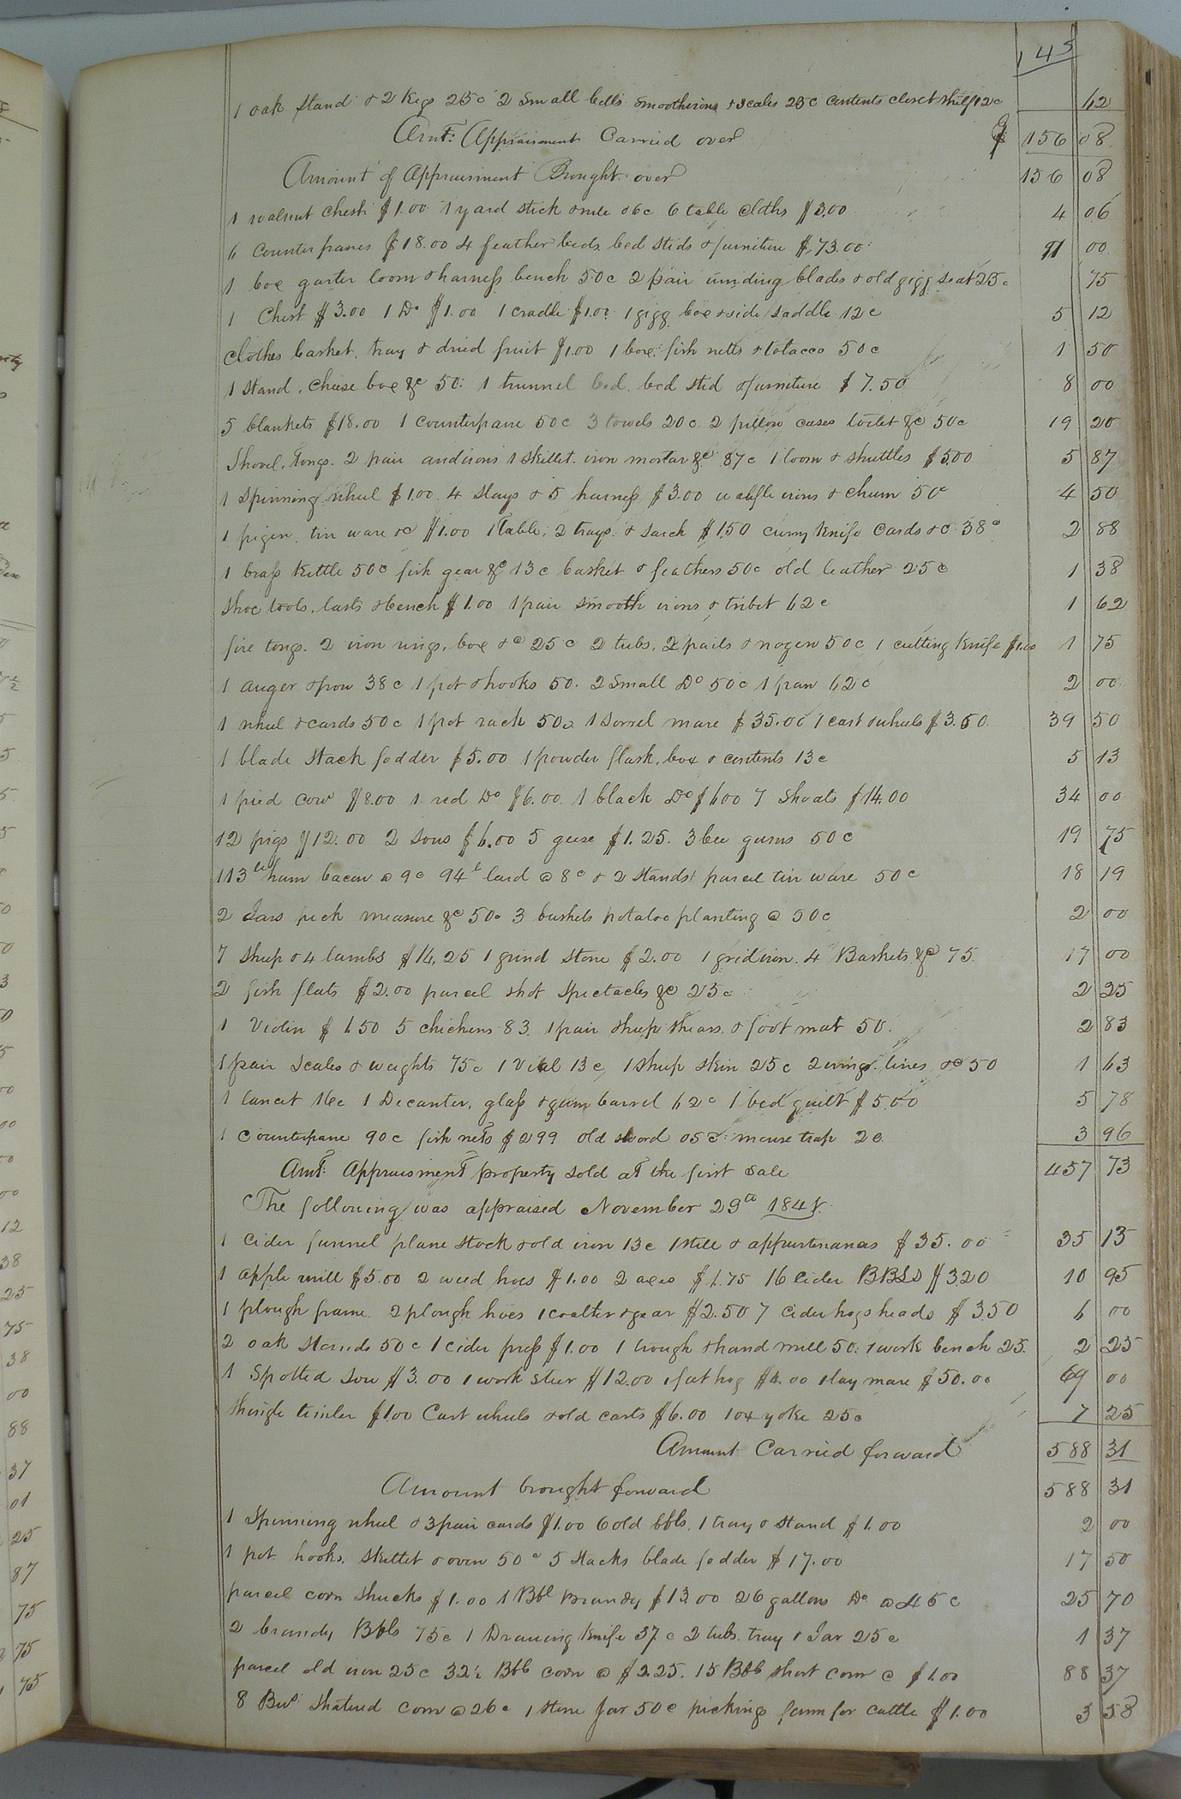 145
1 oak stand & 2 Kegs 25c 2 Small bells Smoothirons & scales 25c Contents closet shelf 12c 62
Amt. Appraisment Carried over $ 156 08
Amount of Appraisment Brought over 156 08
1 walnut Chest $1.00 1 yard stick & rule 06c 6 table cloths $3.00 4 06
6 Counterpanes $18.00 4 feather beds, bed steds & furniture $73.00 91 00
1 box garter loom & harness bench 50c 2 pair winding blades & old gigg seat 25c 75
1 Chest $3.00 1 Do $1.00 1 cradle $1.00 1 gigg box & side saddle 12c 5 12
Clothes basket, tray & dried fruit $1.00 1 box, fish netts & tobacco 50c 1 50
1 stand, cheese box &c 50: 1 trunnel bed, bed sted & furniture $7.50 8 00
5 blankets $18.00 1 counterpane 50c 3 towels 20c 2 pillow cases toilet &c 50c 19 20
Shovel, tongs, 2 pair andirons 1 skillet, iron mortar &c 87c 1 loom & shuttles $5.00 5 87
1 Spinning wheel $1.00 4 slays & 5 harness $3.00 waffle irons & churn 50c 4 50
1 pigin, tin ware &c $1.00 1 table, 2 trays & search $1.50 curry knife Cards &c 38c 2 88
1 brass Kettle 50c fish gear &c 13c basket & feathers 50c old leather 25c 1 38
Shoe tools, lasts & bench $1.00 1 pair smooth irons & tribit 62c 1 62
fire tongs, 2 iron rings, box &c 25c 2 tubs, 2 pails & nogen 50c 1 cutting knife $1.00 1 75
1 auger & frow 38c 1 pot & hooks 50. 2 Small Do 50c 1 pan 62c 2 00
1 wheel & cards 50c 1 pot rack 50c 1 Sorrel mare $35.00 1 cart & wheels $3.50 39 50
1 blade stack fodder $5.00 1 powder flask, box & contents 13c 5 13
1 pied cow $8.00 1 red Do $6.00 1 black Do $6.00 7 shoats $14.00 34 00
12 pigs $12.00 2 sows $6.00 5 geese $1.25. 3 bee gums 50c 19 75
113 lb ham bacon @ 9c 94 lb lard @ 8c & 2 stands, parcel tin ware 50c 18 19
2 Jars peck measure &c 50c 3 bushels potatoe planting @ 50c 2 00
7 sheep & 4 lambs $14.25 1 grind stone $2.00 1 gridiron. 4 Baskets &c 75 17 00
2 fish flats $2.00 parcel shot spectacles &c 25c 2 25
1 Violin $1.50 5 chickens 83. 1 pair sheep shears, & foot mat 50. 2 83
1 pair Scales & weights 75c 1 Vial 13c, 1 sheep skin 25c 2 wings lines &c 50 1 63
1 lancet 16c 1 Decanter, glass & gum barrel 62c 1 bed quilt $5.00 5 78
1 Counterpane 90c fish nets $2.99 old sword 05c mouse trap 2c 3 96
Amt. Appraisment property sold at the first sale 457 73
The following was appraised November 29th 184
1 Cider funnel plane stock & old iron 13c 1 still & appurtenances $35.00 35 13
1 apple mill $5.00 2 weed hoes $1.00 2 axes $1.75 16 Cider BBLS $3.20 10 95
1 plough frame 2 plough hoes 1 coulter & gear $2.50 7 Cider hogsheads $3.50 6 00
2 oak Stands 50c 1 Cider press $1.00 1 trough & hand mill 50: 1 work bench 25. 2 25
1 Spotted Sow $3.00 1 work steer $12.00 1 fat hog $4.00 1 bay mare $50.00 69 00
Shingle timber $1.00 Cart wheels & old carts $6.00 1 ox yoke 25c 7 25
Amount Carried forward 588 31
Amount brought forward 588 31
1 Spinning wheel & 3 pair cards $1.00 6 old bbls. 1 tray & stand $1.00 2 00
1 pot hooks, skillet & oven 50c 5 stacks blade fodder $17.00 17 50
parcel corn shucks $1.00 1 Bbl Brandy $13.00 26 gallons Do @ 45c 25 70
2 brandy Bbls 75c 1 Drawing Knife 37c 2 tubs, tray & Jar 25c 1 37
parcel old iron 25c 32½ Bbls corn @ $2.25. 15 Bbls short corn @ $1.00 88 37
8 Bus. Shatterd corn @ 26c 1 stone Jar 50c picking farm for cattle $1.00 3 58